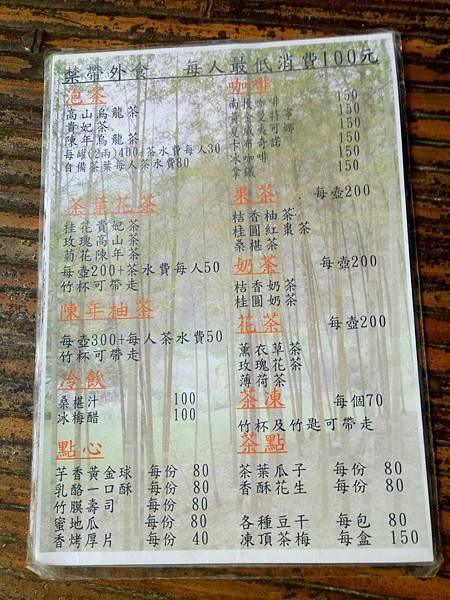 禁帶外食 每人最低消費100元
泡茶
高山烏龍茶
貴妃茶
陳年烏龍茶
每罐(2兩)400+茶水費每人30
自備茶葉每人茶水費80
茶葉花茶
桂花貴妃茶
玫瑰高山茶
菊花陳年茶
每壺200+茶水費每人50
竹杯可帶走
陳年柚茶
每壺300+每人茶水費50
竹杯可帶走
冷飲
桑椹汁 100
冰梅醋 100
點心
芋香黃金球 每份 80
乳酪一口酥 每份 80
竹膜壽司
蜜地瓜 每份 80
香烤厚片 每份 40
咖啡
150
150
150
150
150
150
果茶 每壺200
桔香柚茶
桂圓紅棗茶
桑椹茶
奶茶 每壺200
桔香奶茶
桂圓奶茶
花茶 每壺200
薰衣草茶
玫瑰花茶
薄荷茶
茶凍 每個70
竹杯及竹匙可帶走
茶點
茶葉瓜子 每份 80
香酥花生 每份 80
各種豆干 每包 80
凍頂茶梅 每盒 150